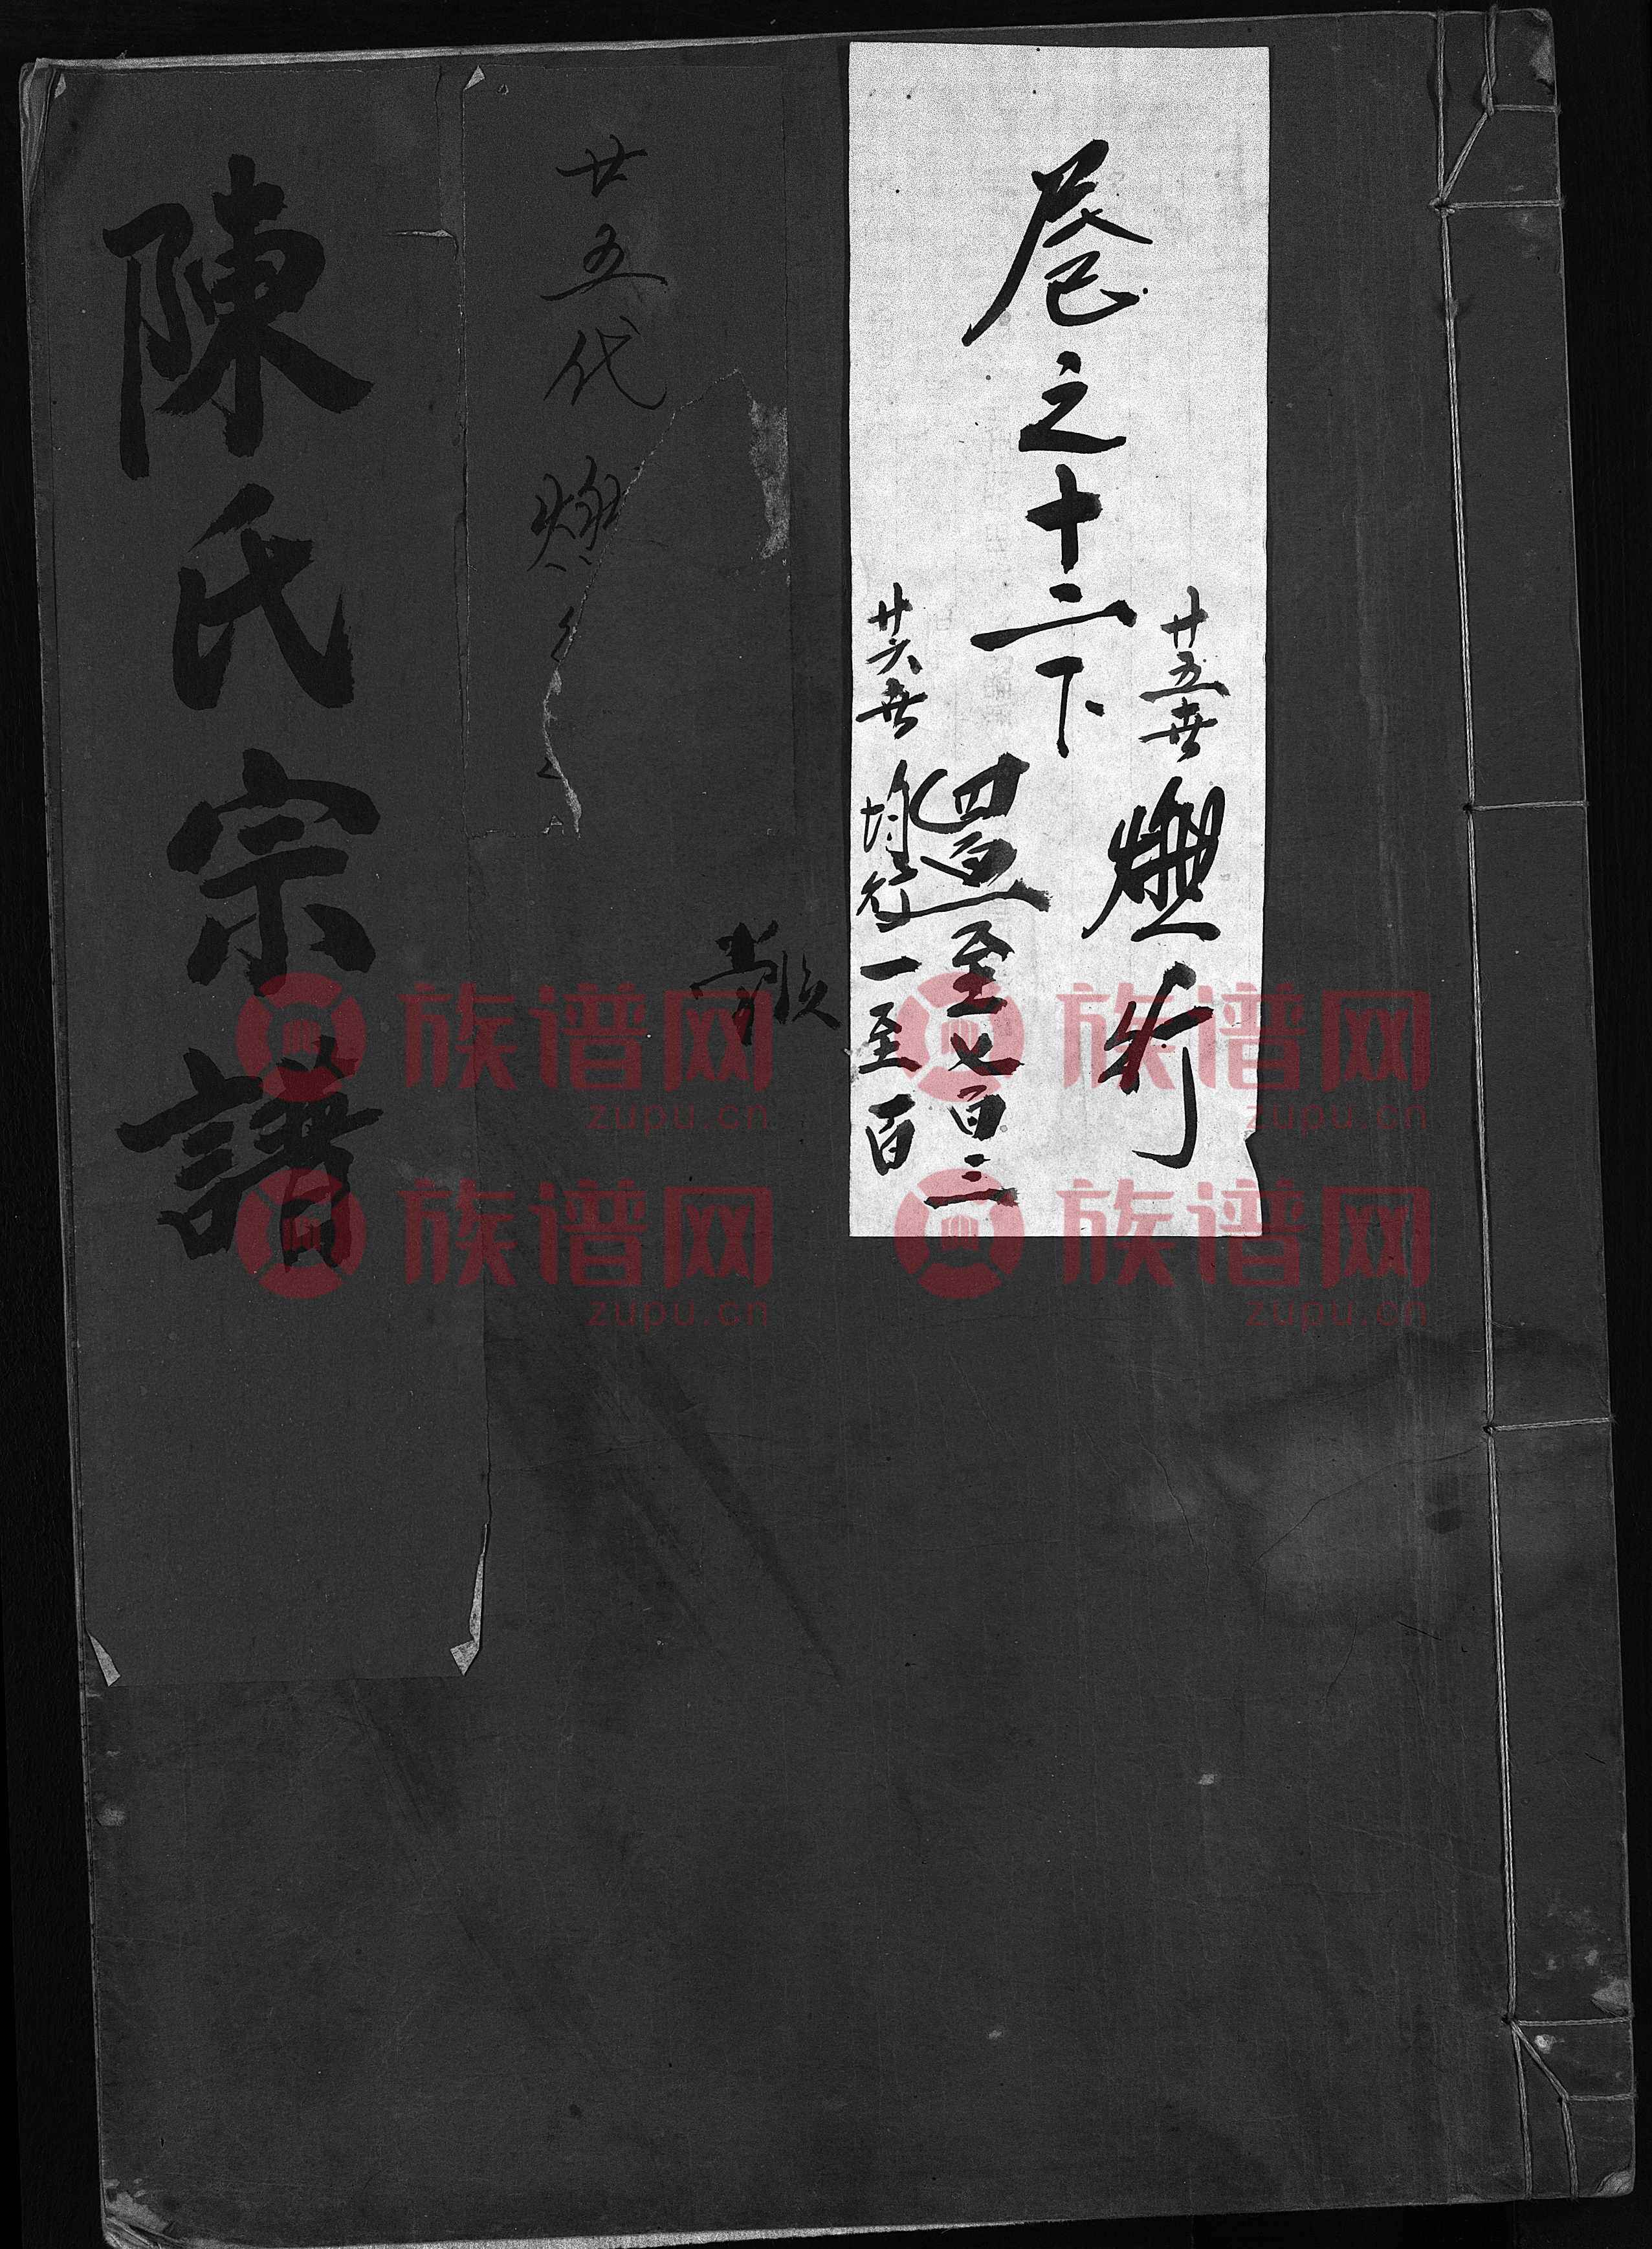 卷之十二下
廿五世
行
至七百三
廿六世
均行一至百
廿五代
陳氏宗譜
族谱网
zupu.cn
族谱网
zupu.cn
族谱网
zupu.cn
族谱网
zupu.cn